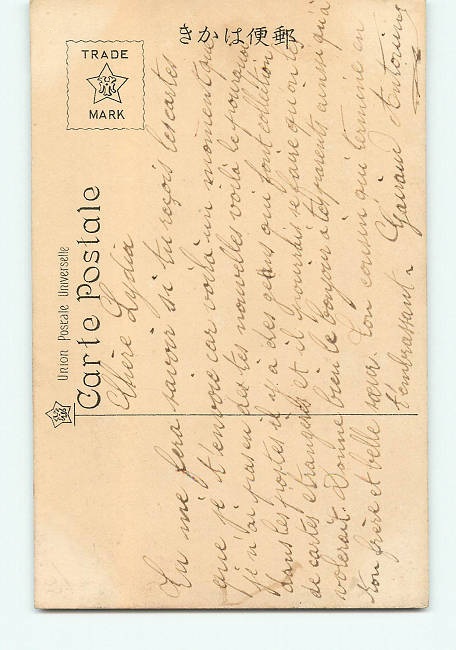 きかは便郵
TRADE
MARK
Union Postale Universelle
Carte Postale
Chère Lydia
Tu me fera savoir si tu reçois les cartes
que je t'envoie car voilà un moment que
je n'ai pas eu des tes nouvelles voilà le pourquoi
dans les postes il y à des gens qui font collection
de cartes étrangères et il pourrais se faire qu'on les
volerait. Donne bien le bonjour à tes parents ainsi qu'à
ton frère et belle sœur. Ton cousin qui termine en
t'embrassant.
Antonin